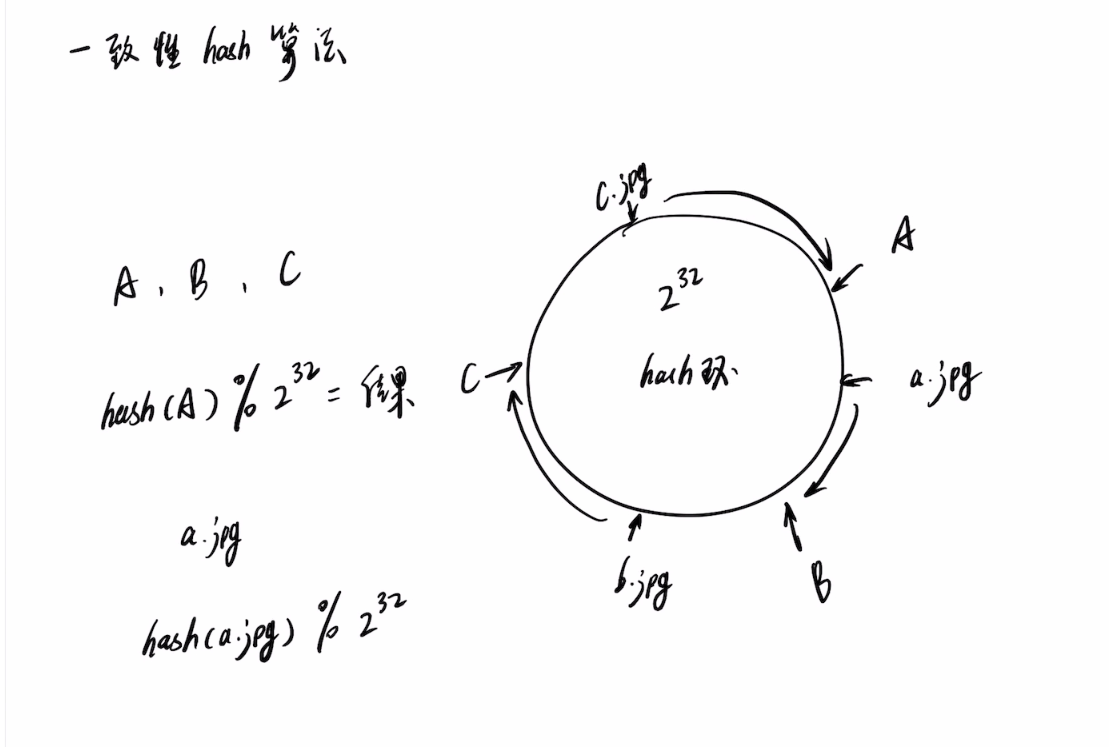 一致性hash算法
A、B、C
hash(A) % 2^32 = 结果
a.jpg
hash(a.jpg) % 2^32
c.jpg
A
2^32
C
hash环
a.jpg
b.jpg
B